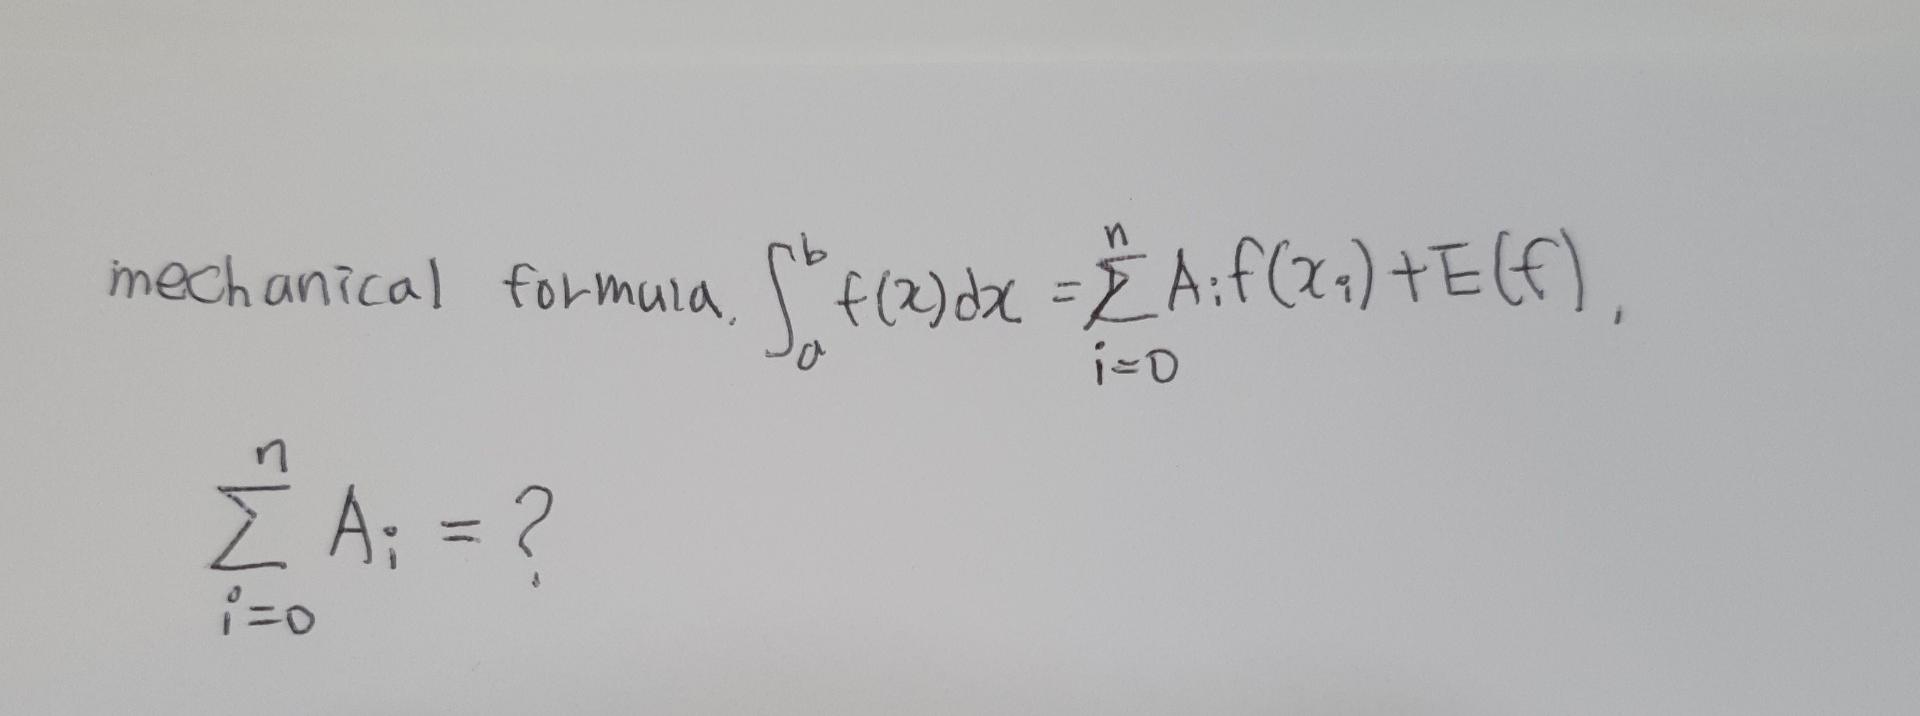 mechanical formula. ∫_a^b f(x)dx = ∑_{i=0}^n A_i f(x_i) + E(f),
∑_{i=0}^n A_i = ?